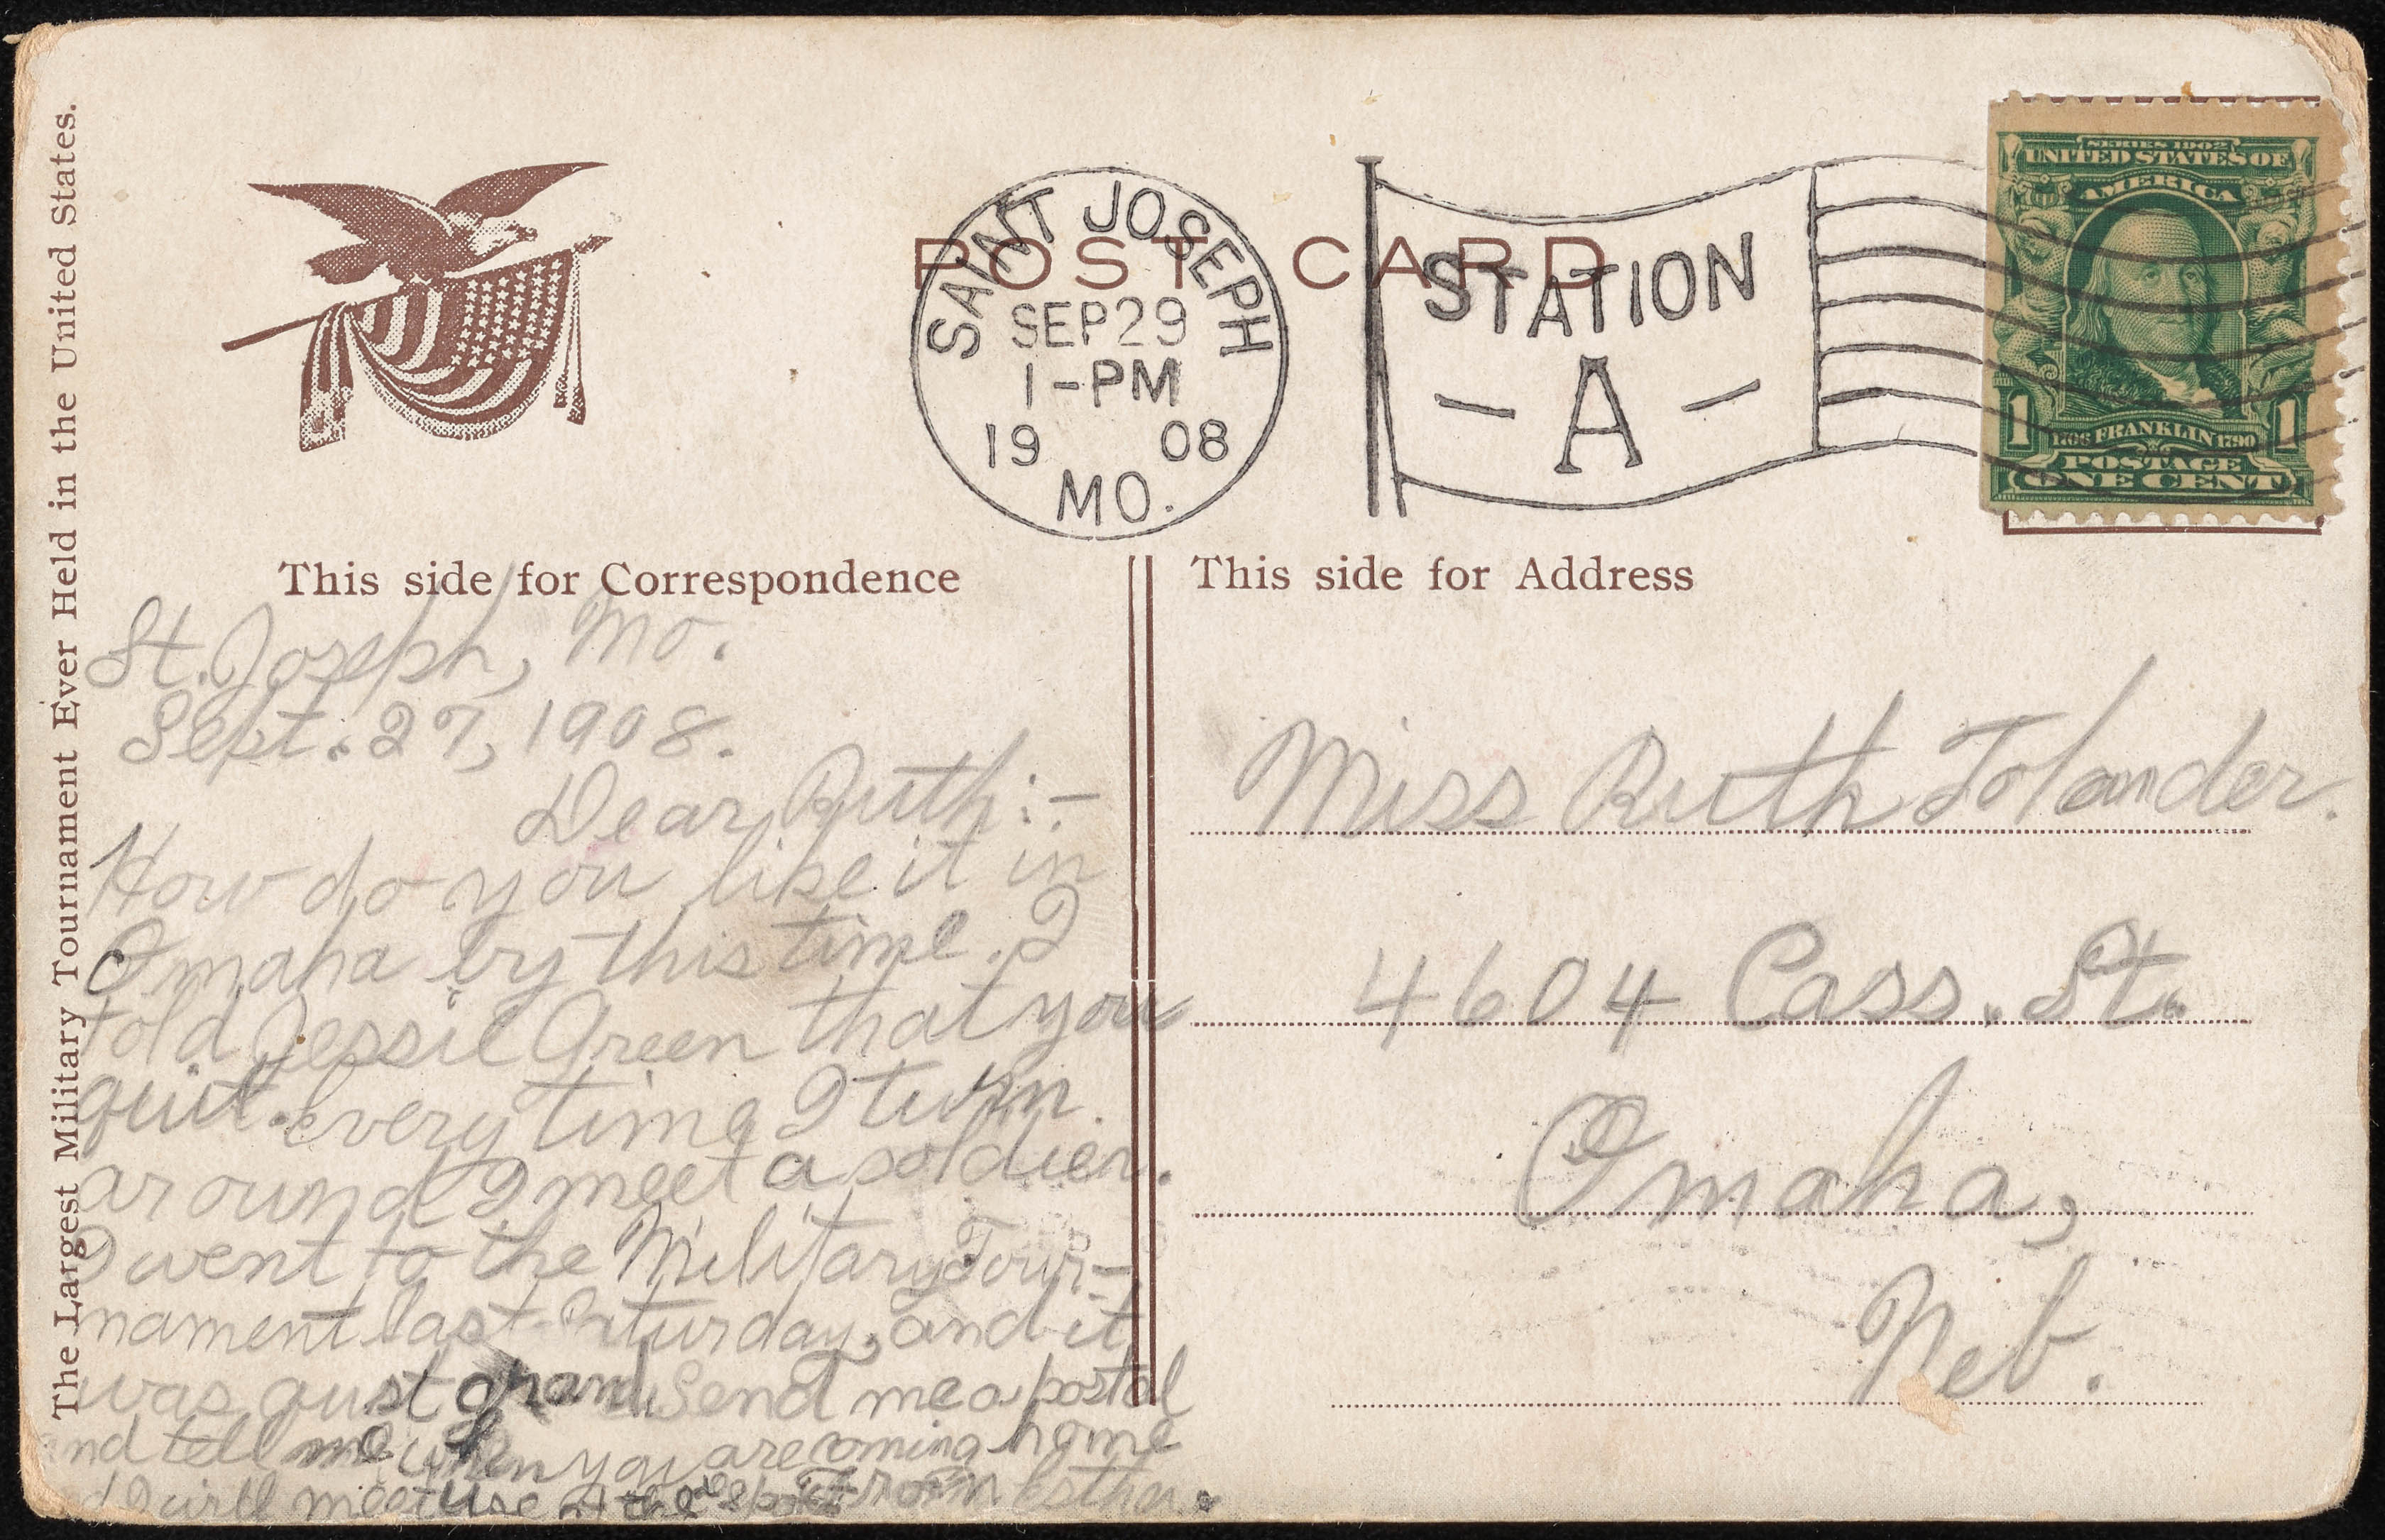 The Largest Military Tournament Ever Held in the United States.
POST CARD
SAINT JOSEPH
SEP 29
1-PM
19 08
MO.
STATION
-A-
SERIES 1902
UNITED STATES OF
AMERICA
1 1706 FRANKLIN 1790 1
POSTAGE
ONE CENT
This side for Correspondence
St. Joseph, Mo.
Sept. 27, 1908.
Dear Ruth:-
How do you like it in
Omaha by this time. I
told Jessie Green that you
quit. every time I turn
around I meet a soldier.
I went to the Military Tour-
nament last Saturday, and it
was gust grand. Send me a postal
nd tell me when you are coming home
d I will meet at the depot From Esther.
This side for Address
Miss Ruth Tolander.
4604 Cass. St.
Omaha,
Neb.